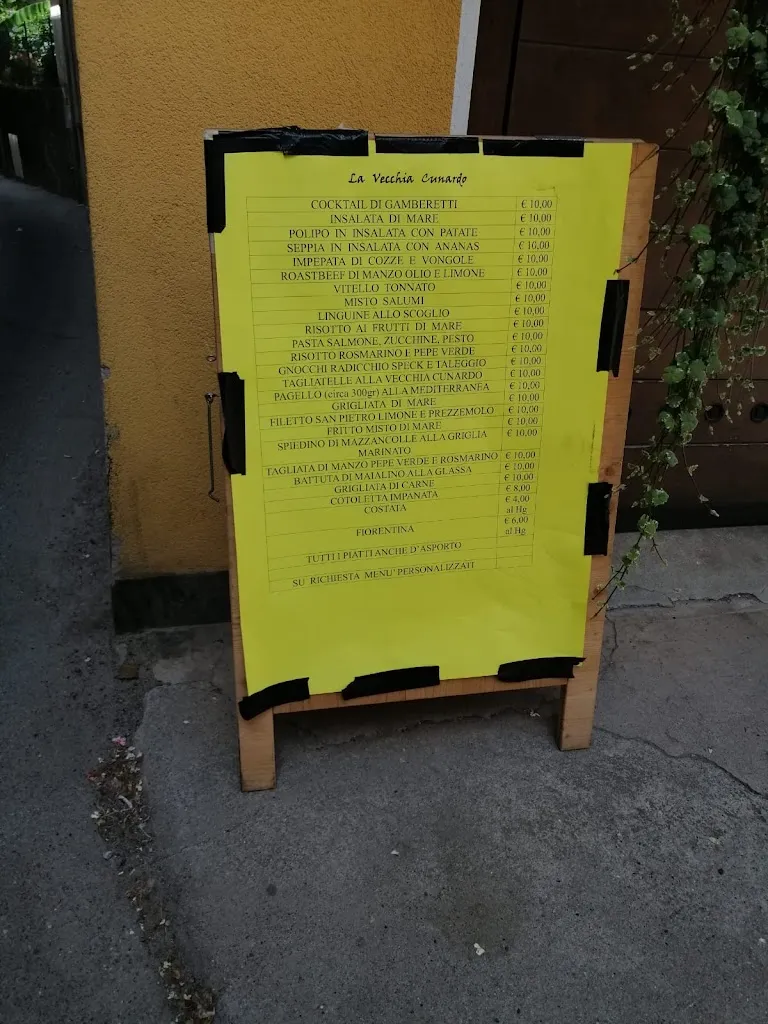 La Vecchia Cunardo
COCKTAIL DI GAMBERETTI € 10,00
INSALATA DI MARE € 10,00
POLIPO IN INSALATA CON PATATE € 10,00
SEPPIA IN INSALATA CON ANANAS € 10,00
IMPEPATA DI COZZE E VONGOLE € 10,00
ROASTBEEF DI MANZO OLIO E LIMONE € 10,00
VITELLO TONNATO € 10,00
MISTO SALUMI € 10,00
LINGUINE ALLO SCOGLIO € 10,00
RISOTTO AI FRUTTI DI MARE € 10,00
PASTA SALMONE, ZUCCHINE, PESTO € 10,00
RISOTTO ROSMARINO E PEPE VERDE € 10,00
GNOCCHI RADICCHIO SPECK E TALEGGIO € 10,00
TAGLIATELLE ALLA VECCHIA CUNARDO € 10,00
PAGELLO (circa 300gr) ALLA MEDITERRANEA € 10,00
GRIGLIATA DI MARE € 10,00
FILETTO SAN PIETRO LIMONE E PREZZEMOLO € 10,00
FRITTO MISTO DI MARE € 10,00
SPIEDINO DI MAZZANCOLLE ALLA GRIGLIA € 10,00
MARINATO
TAGLIATA DI MANZO PEPE VERDE E ROSMARINO € 10,00
BATTUTA DI MAIALINO ALLA GLASSA € 10,00
GRIGLIATA DI CARNE € 10,00
COTOLETTA IMPANATA € 8,00
COSTATA € 4,00
al Hg
FIORENTINA € 6,00
al Hg
TUTTI I PIATTI ANCHE D'ASPORTO
SU RICHIESTA MENU' PERSONALIZZATI